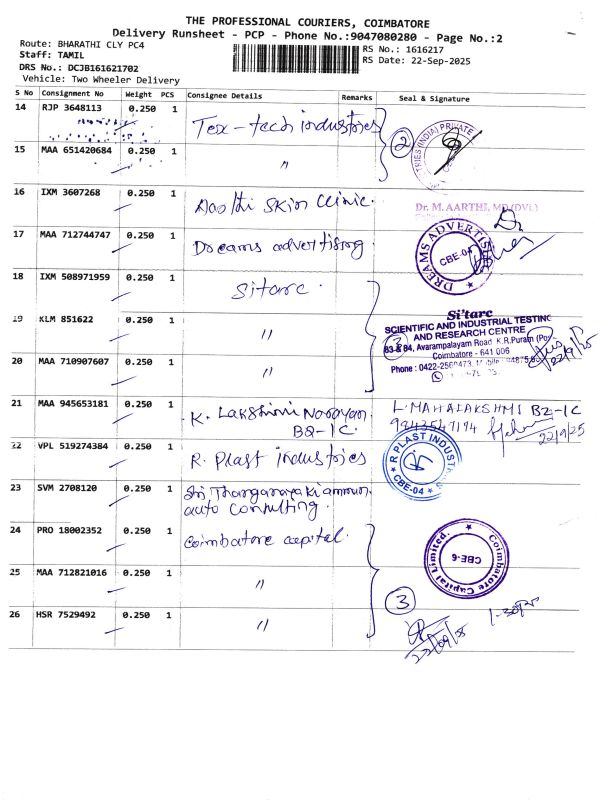 THE PROFESSIONAL COURIERS, COIMBATORE
Delivery Runsheet - PCP - Phone No.:9047080280 - Page No.:2
Route: BHARATHI CLY PC4
Staff: TAMIL
DRS No.: DCJB161621702
Vehicle: Two Wheeler Delivery
RS No.: 1616217
RS Date: 22-Sep-2025
S No Consignment No Weight PCS Consignee Details Remarks Seal & Signature
14 RJP 3648113 0.250 1 Tex-tech industries
2
TRIES (INDIA) PRIVATE
15 MAA 651420684 0.250 1 "
16 IXM 3607268 0.250 1 Aasthi skin clinic.
Dr. M. AARTHI, MD (DVL)
17 MAA 712744747 0.250 1 Dreams advertising.
DREAMS ADVERTISING
CBE-04
18 IXM 508971959 0.250 1 Sitarc.
Si'tarc
19 KLM 851622 0.250 1 "
SCIENTIFIC AND INDUSTRIAL TESTING
AND RESEARCH CENTRE
83 & 84, Avarampalayam Road K.R.Puram (Po)
Coimbatore - 641 006
22/9/25
20 MAA 710907607 0.250 1 "
3
21 MAA 945653181 0.250 1 K. Lakshmi Narayan
B2-1C.
L. MAHALAKSHMI B2-1C
9843547194
22/9/25
22 VPL 519274384 0.250 1 R. Plast industries
R PLAST INDUSTRIES
CBE-04
23 SVM 2708120 0.250 1 Sri Thanganayaki amman
auto consulting.
24 PRO 18002352 0.250 1 Coimbatore capital.
Coimbatore Capital Limited.
CBE-6
25 MAA 712821016 0.250 1 "
3
26 HSR 7529492 0.250 1 "
22/09/25